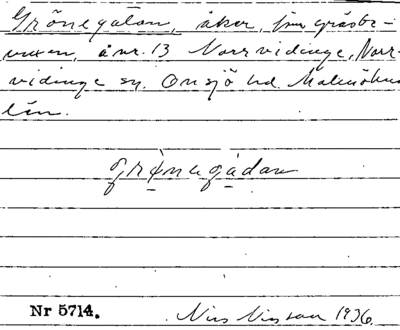 Grönegatan, åker, [nu] gräsbe-
vuxen, å nr. 13 Norrvidinge, Norr-
vidinge sn. Onsjö hd. Malmöhus
län.
grönegådan
Nr 5714.
Nils Nilsson 1936.